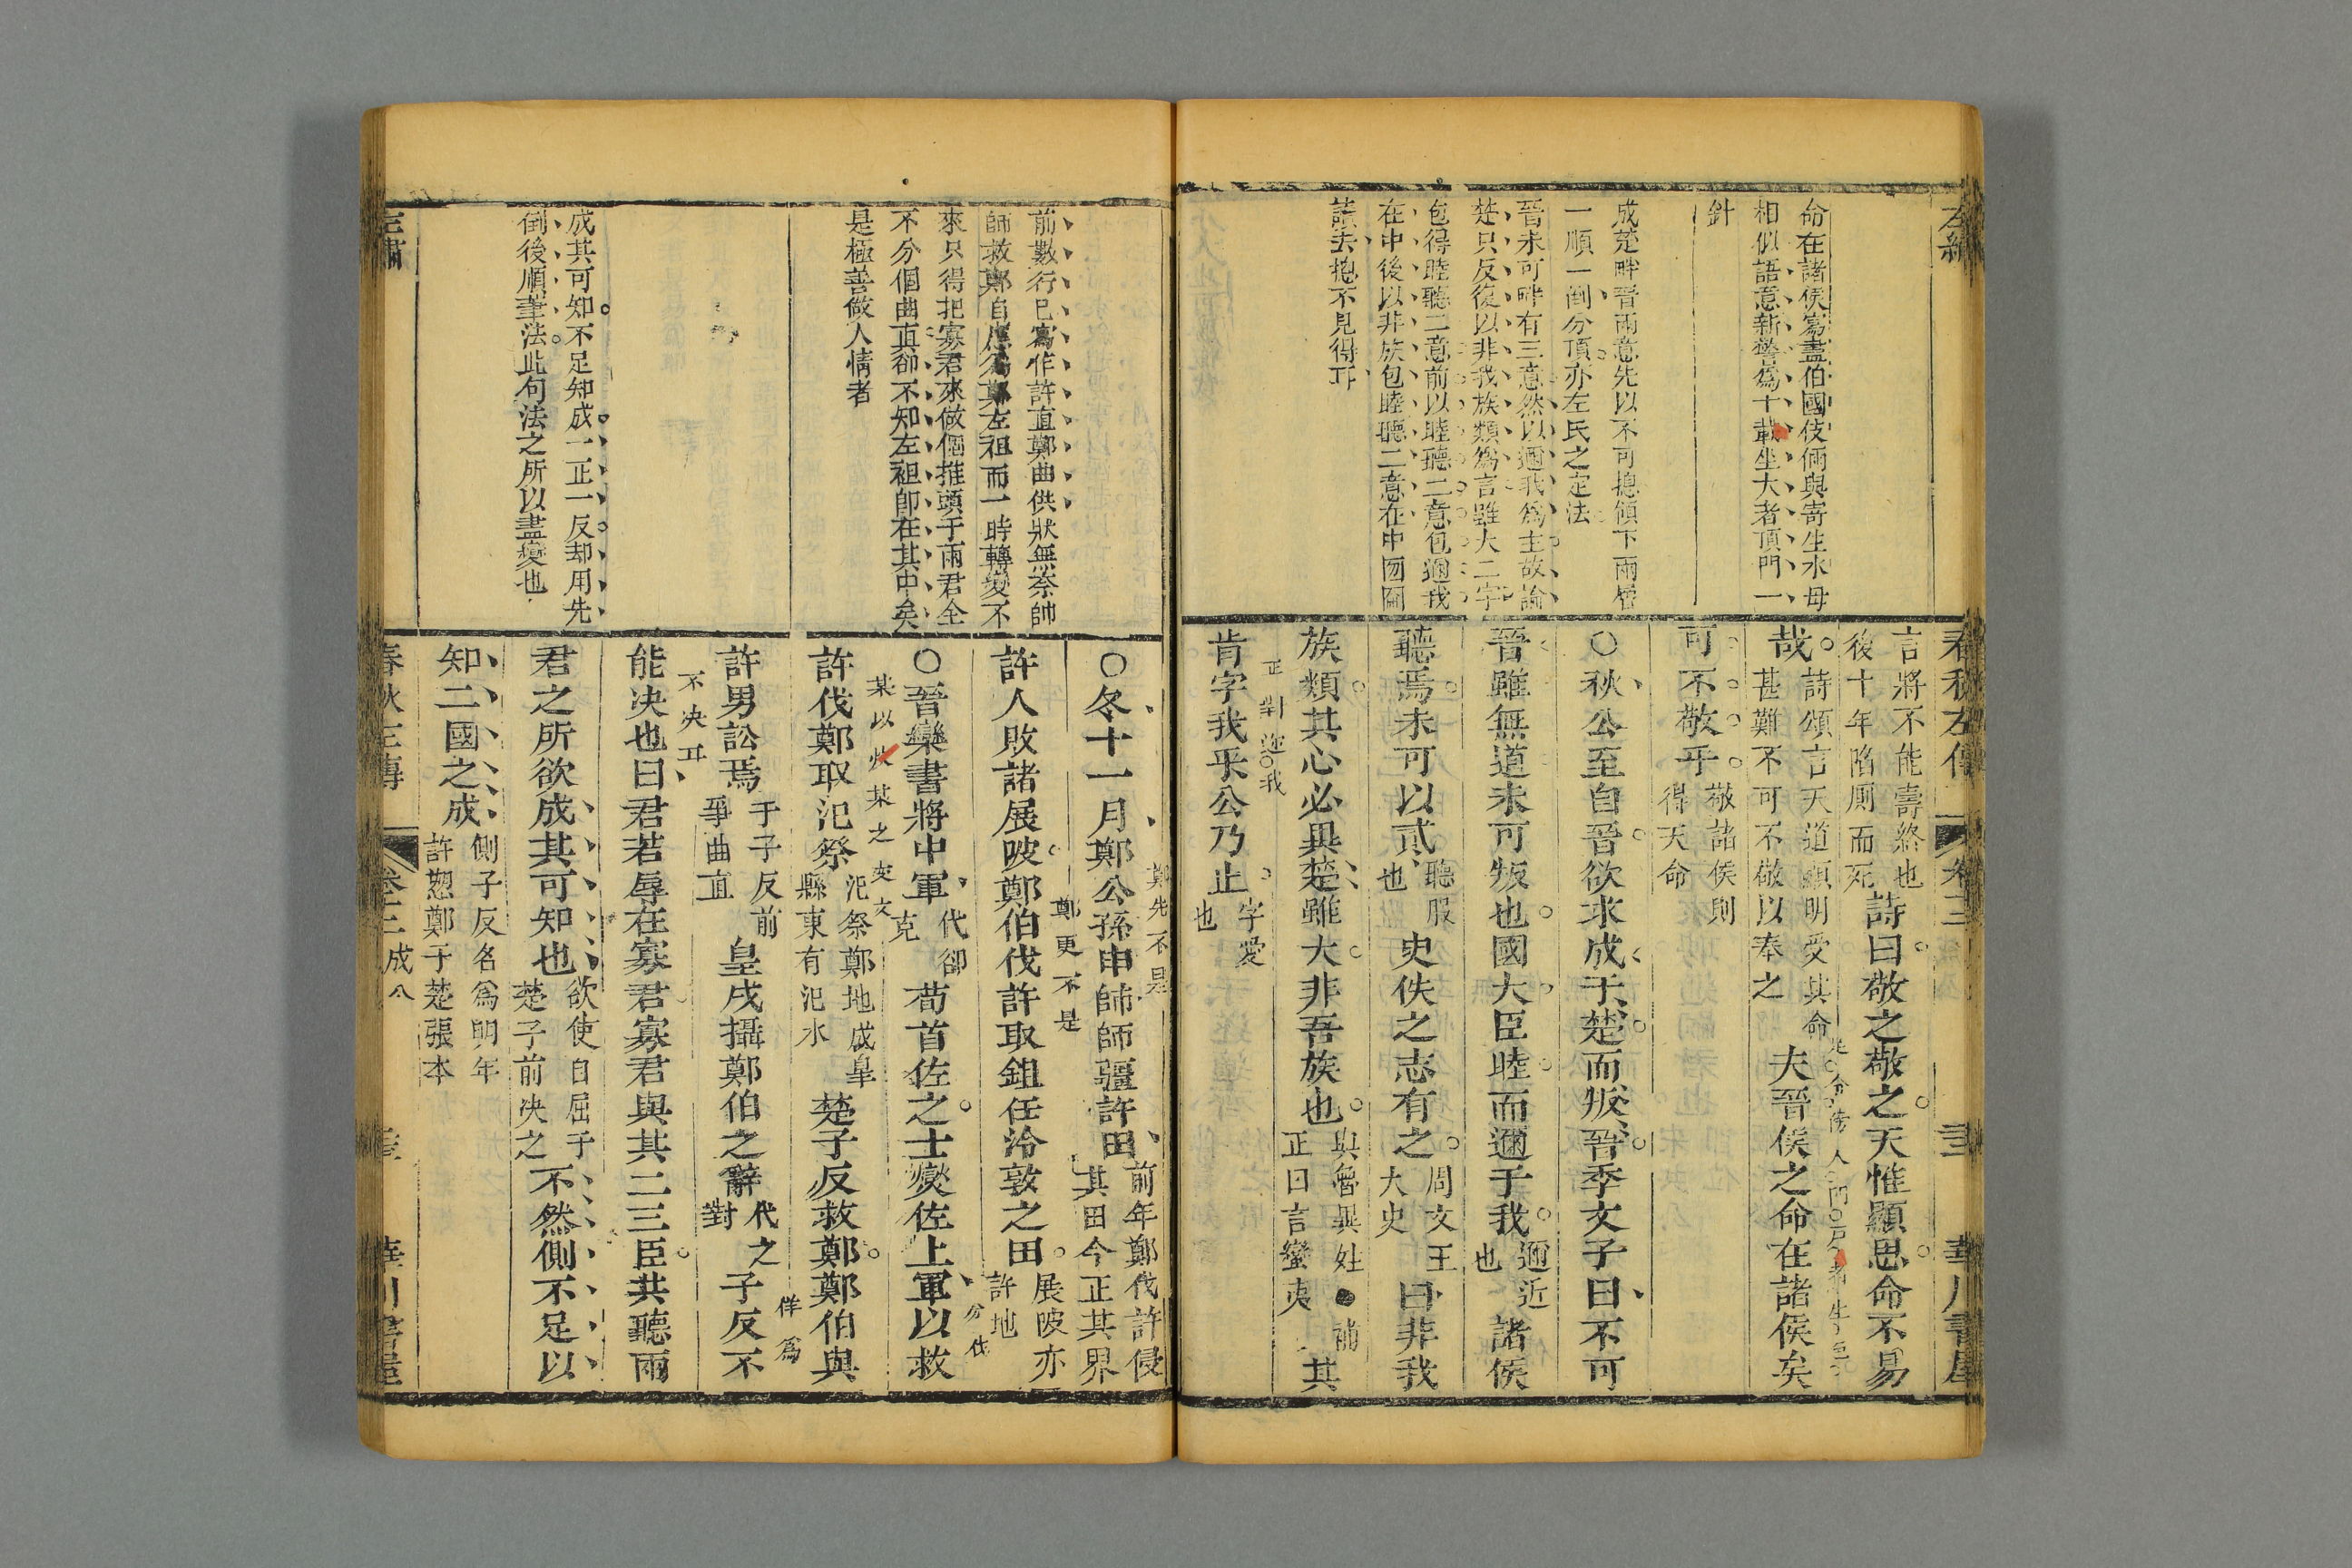 命在諸侯寫盡伯國伎倆與寄生水母
相似語意新警爲千載坐大者頂門一
針
成楚畔晉兩意先以不可摠領下兩層
一順一倒分頂亦左氏之定法
晉未可畔有三意然以邇我爲主故論
楚只反復以非我族類爲言雖大二字
包得睦聽二意前以睦聽二意包邇我
在中後以非族包睦聽二意在中囫圇
讀去摠不見得耳
春秋左傳
卷三
華川書屋
言將不能壽終也
後十年陷厠而死
詩曰敬之敬之天惟顯思命不易
哉
詩頌言天道顯明受其命
甚難不可不敬以奉之
夫晉侯之命在諸侯矣
可不敬乎
敬諸侯則
得天命
○秋公至自晉欲求成于楚而叛晉季文子曰不可
晉雖無道未可叛也國大臣睦而邇于我
邇近
也
諸侯
聽焉未可以貳
聽服
也
史佚之志有之
周文王
大史
曰非我
族類其心必異楚雖大非吾族也
與魯異姓●補
正曰言蠻夷
其
正對邇我
肯字我乎公乃止
字愛
也
前數行已寫作許直鄭曲供狀無奈帥
師救鄭自應爲鄭左袒而一時轉變不
來只得把寡君來做個推頭于兩君全
不分個曲直卻不知左袒卽在其中矣
是極善做人情者
成其可知不足知成一正一反却用先
倒後順筆法此句法之所以盡變也
鄭先不是
○冬十一月鄭公孫申帥師疆許田
前年鄭伐許侵
其田今正其界
鄭更不是
許人敗諸展陂鄭伯伐許取鉏任泠敦之田
展陂亦
許地
○晉欒書將中軍
代卻
克
荀首佐之士燮佐上軍以救
許伐鄭取氾祭
氾祭鄭地成臯
縣東有氾水
楚子反救鄭鄭伯與
許男訟焉
于子反前
爭曲直
皇戌攝鄭伯之辭
代之
對
子反不
佯爲
不决耳
能决也曰君若辱在寡君寡君與其二三臣共聽兩
君之所欲成其可知也
欲使自屈于
楚子前决之
不然側不足以
知二國之成
側子反名爲明年
許愬鄭于楚張本
春秋左傳
卷三
成公
華川書屋